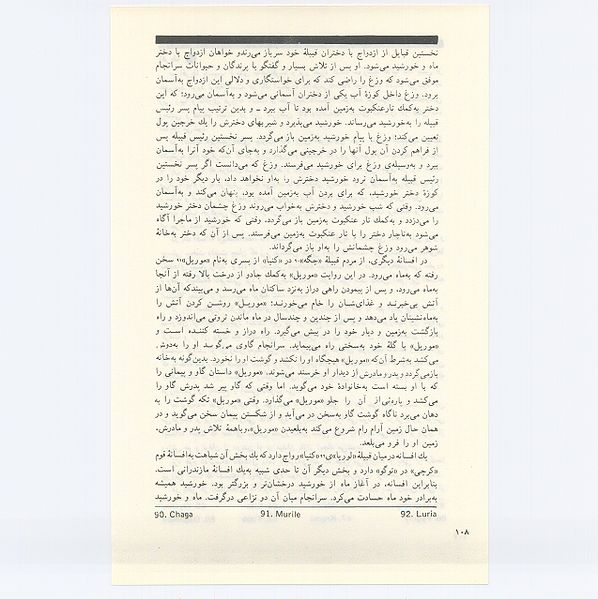 نخستین قبایل از ازدواج با دختران قبیلهٔ خود سرباز می‌زندو خواهان ازدواج با دختر
ماه و خورشید می‌شود. او پس از تلاش بسیار و گفتگو با پرندگان و حیوانات سرانجام
موفق می‌شود که وزغ را راضی کند که برای خواستگاری و دلالی این ازدواج به‌آسمان
برود. وزغ داخل کوزهٔ آب یکی از دختران آسمانی می‌شود و به‌آسمان می‌رود؛ که این
دختر به‌کمك تارعنکبوت به‌زمین آمده بود تا آب ببرد ــ و بدین ترتیب پیام پسر رئیس
قبیله را به‌خورشید می‌رساند. خورشید می‌پذیرد و شیربهای دخترش را یك خرجین پول
تعیین می‌کند؛ وزغ با پیام خورشید به‌زمین باز می‌گردد. پسر نخستین رئیس قبیله پس
از فراهم کردن آن پول آنها را در خرجینی می‌گذارد و به‌جای آن‌که خود آنرا به‌آسمان
ببرد و به‌وسیله‌ی وزغ برای خورشید می‌فرستد. وزغ که می‌دانست اگر پسر نخستین
رئیس قبیله به‌آسمان نرود خورشید دخترش را به‌او نخواهد داد، بار دیگر خود را در
کوزهٔ دختر خورشید، که برای بردن آب به‌زمین آمده بود، پنهان می‌کند و به‌آسمان
می‌رود. وقتی که شب خورشید و دخترش به‌خواب می‌روند وزغ چشمان دختر خورشید
را می‌دزدد و به‌کمك تار عنکبوت به‌زمین باز می‌گردد، وقتی که خورشید از ماجرا آگاه
می‌شود به‌ناچار دختر را با تار عنکبوت به‌زمین می‌فرستد. پس از آن که دختر به‌خانهٔ
شوهر می‌رود وزغ چشمانش را به‌او باز می‌گرداند.
در افسانهٔ دیگری، از مردم قبیلهٔ «چگه»۹۰ در «کنیا» از پسری به‌نام «موریل»۹۱ سخن
رفته که به‌ماه می‌رود. در این روایت «موریل» به‌کمك جادو از درخت بالا رفته از آنجا
به‌ماه می‌رود، و پس از پیمودن راهی دراز به‌نزد ساکنان ماه می‌رسد و می‌بیندکه آن‌ها از
آتش بی‌خبرنـد و غذای‌شـان را خام می‌خورنـد؛ «موریـل» روشـن کردن آتش را
به‌ماه‌نشینان یاد می‌دهد و پس از چندین و چندسال در ماه ماندن ثروتی می‌اندوزد و راه
بازگشت به‌زمین و دیار خود را در پیش می‌گیرد. راه دراز و خسته کننـده است و
«موریل» با گلهٔ خود به‌سختی راه می‌پیماید. سرانجام گاوی می‌گوید او را به‌دوش
می‌کشد به‌شرط آن‌که «موریل» هیچگاه او را نکشد و گوشت او را نخورد. بدین‌گونه به‌خانه
بازمی‌گردد و پدر و مادرش از دیدار او خرسند می‌شوند. «موریل» داستان گاو و پیمانی را
که با او بسته است به‌خانوادهٔ خود می‌گوید. اما وقتی که گاو پیر شد پدرش گاو را
می‌کشد و پاره‌ئی از آن را جلو «موریل» می‌گذارد. وقتی «موریل» تکه گوشت را به
دهان می‌برد ناگاه گوشت گاو به‌سخن در می‌آید و از شکستن پیمان سخن می‌گوید و در
همان حال زمین آرام رام شروع می‌کند به‌بلعیدن «موریل»، و باهمهٔ تلاش پدر و مادرش،
زمین او را فرو می‌بلعد.
یك افسانه در میان قبیلهٔ «لوریا»ی۹۲ «کنیا» رواج دارد که یك بخش آن شباهت به‌افسانهٔ قوم
«کرجی» در «توگو» دارد و بخش دیگر آن تا حدی شبیه به‌یك افسانهٔ مازندرانی است.
بنابراین افسانه، در آغاز ماه از خورشید درخشان‌تر و بزرگتر بود. خورشید همیشه
به‌برادر خود ماه حسادت می‌کرد. سرانجام میان آن دو نزاعی درگرفت. ماه و خورشید
90. Chaga 91. Murile 92. Luria
۱۰۸